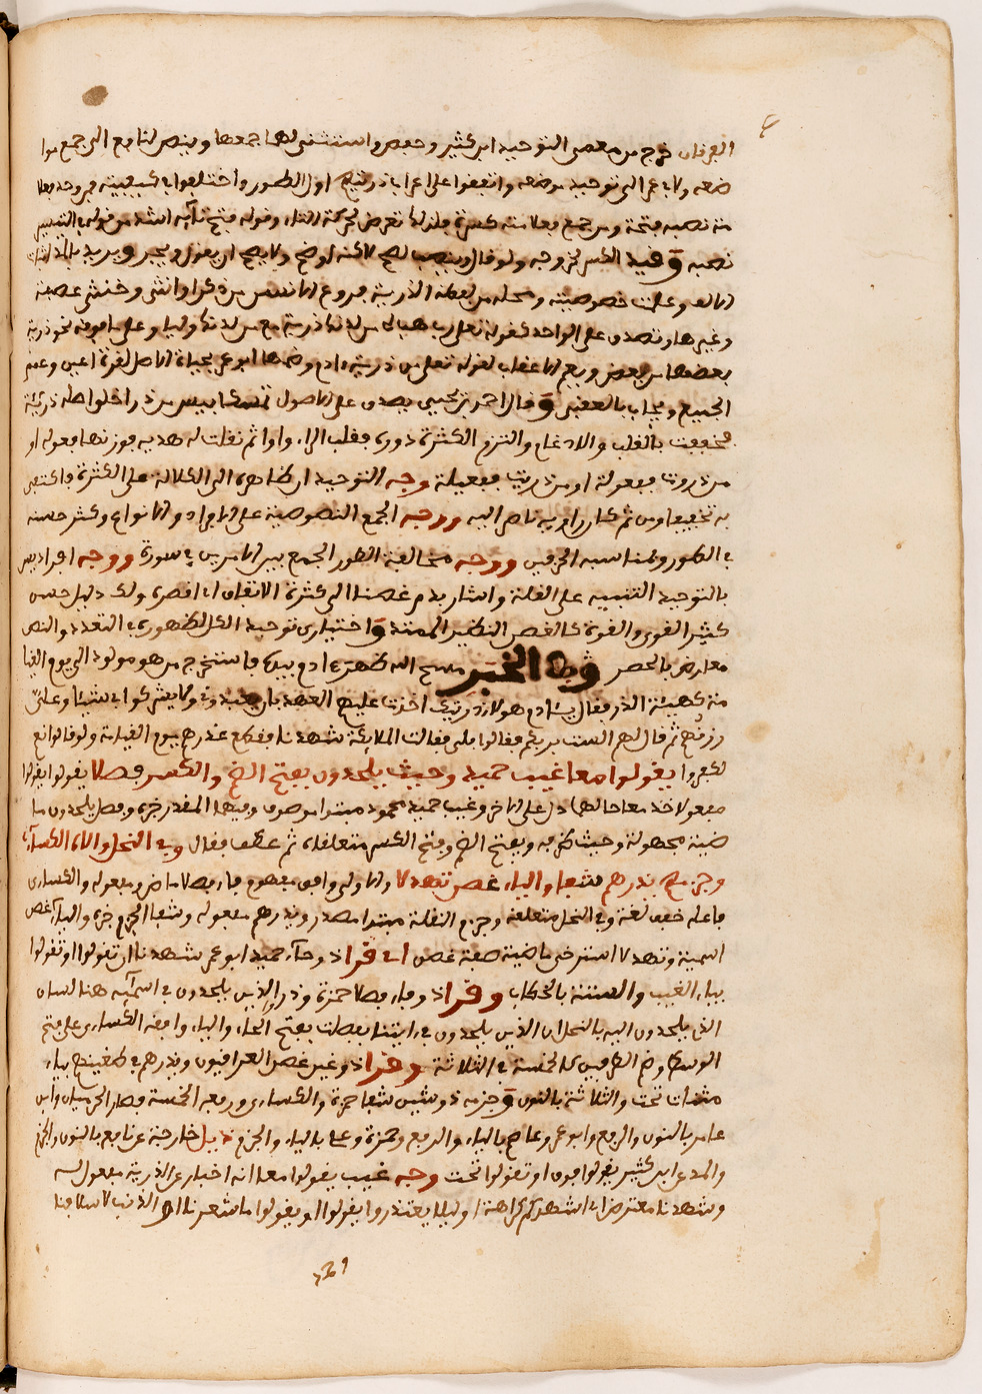 الفرقان خرج من معصى التوحيد ابن كثير وحفص واستثنى لهما جمعها وينص لنا مع الى جمع موا
ضعه ولابى عمر الى توحيد موضعه واتفقوا على اعراب ذريتهم اول الطور واختلفوا في كيفيته فمن وحد فعلا
مة نصبه فتحة ومن جمع فعلامته كسرة فلذلك تعرض لحركة التاء وقوله فتح تائه اشد من قوله في التيسير
نصبه وقيد الكسر لخروجه ولو قال وينصب لصح لاكنه اوضح ولا يصح ان يقول ويجر ويريد بالمد اثبات
الالف وعلت خصوصيته ومحله من لفظه الذرية فروع الانسان من ذكر او انثى وخنثى عصبة
وغيرها وتصدق على الواحد كقوله تعلى رب هب لى من لدنك ذرية مع من لدنك وليا وعلى ما فوقه نحو ذرية
بعضها من بعض ويعم الاعقاب لقوله تعلى من ذرية ادم وضمها ابو عمر بحياة الاصل لقرة اعين وعمم
الجميع ويجاب بالعقبى وقال احمد بن يحيى يصدق على الاصول تمسكا بيس من ذرا خلوا صله ذريئة
فخففت بالقلب والادغام والتزم الكثرة ذورة فقلب الراء واوا ثم نقلت له هديه فوزنها فعولة او
من ذروت ففعولة او من ذريت ففعيلة وجه التوحيد ان ظاهره الى الدلالة على الكثرة فاكتفى
به تخفيفا ومن ثم كان رايه ناص اليه ووجه الجمع النصوصية على الافراد والانواع وكثر حسنه
في الطور ولمناسبه الحرفين ووجه مخالفة الطور الجمع بين الامرين في سورة ووجه افراد يس
بالتوحيد التنبيه على القلة واشار بدم غصنا الى كثرة الاتفاق اى اقصره ولك دليل حسن
كثير القوى والقوة كالغصن النظير الممتد واختيارى توحيد الكل لظهوره في التعدد والنص
معارض بالحصر وطا الخبر مسح الله ظهر ادم بيده فاستخرج من هو مولود الى يوم القيا
مة كهيئة الذر فقال يـادم هولاء ذريتك اخذت عليهم العهد بان يعبدونى ولا يشركوا بى شيئا وعلىّ
رزقهم ثم قال لهم الست بربكم فقالوا بلى فقالت الملائكة شهدنا فقطع عذرهم يوم القيامة ولو قالوا نعم
لكفروا يقولوا معا غيب حميد وحيث يلحدون بفتح الضم والكسر فصلا يقولوا يقولوا
مفعولا خذ معا حالهما دل على الاخر وغيب حميد محمود مبتدا موصوف وفيهما المقدر خبره وفصل يلحدون ما
ضية مجهولة وحيث ظرفه وبفتح الضم وفتح الكسر متعلقاه ثم عطف فقال وفى النحل والاه الكسائى
وجزمهم يذرهم شفا والياء غصن تهدلا والاه ولى وافق مفعوم فاء فصلا ماض ومفعوله والكسائى
فاعله خفف لغة وفى النحل متعلقه وجزم النقلة مبتدا مصدر ويذرهم مفعوله وشفا الجزم خبره والياء غصن
اسمية وتهدلا استرخى ماضية صفة غصن اى قرا ذو حاء حميد ابو عمر شهدنا ان تقولوا او تقولوا
بياء الغيب والستة بالخطاب وقرا ذو فاء فصلا حمزة وذروا الذين يلحدون في اسمائه هنا لسان
الذى يلحدون اليه بالنحل ان الذين يلحدون في ءايتنا بفصلت بفتح الحاء والياء وافقه الكسائى على فتح
الوسطى وضم الطرفين كالخمسة في الثلاثة وقرا ذو غين غصن العراقيون ويذرهم في طغينهم بياء
مثناة تحت والثلاثة بالنون وجزمه ذو شين شفا حمزة والكسائى ورفعه الخمسة فصار الحرميان وابن
عامر بالنون والرفع وابو عمر وعاصم بالياء والرفع وحمزة وعلى بالياء والجزم ذيل خارجة عن نافع بالنون والجزم
والمدعى ابن كثير يقولوا فوق او تقولوا تحت وجه غيب يقولوا معا انه اخبار عن الذرية مفعول له
وشهدنا معترض اى اشهدكم كراهة او ليلا يعتذروا يقولوا او يقولوا ما شعرنا او الذنب لاسلافنا